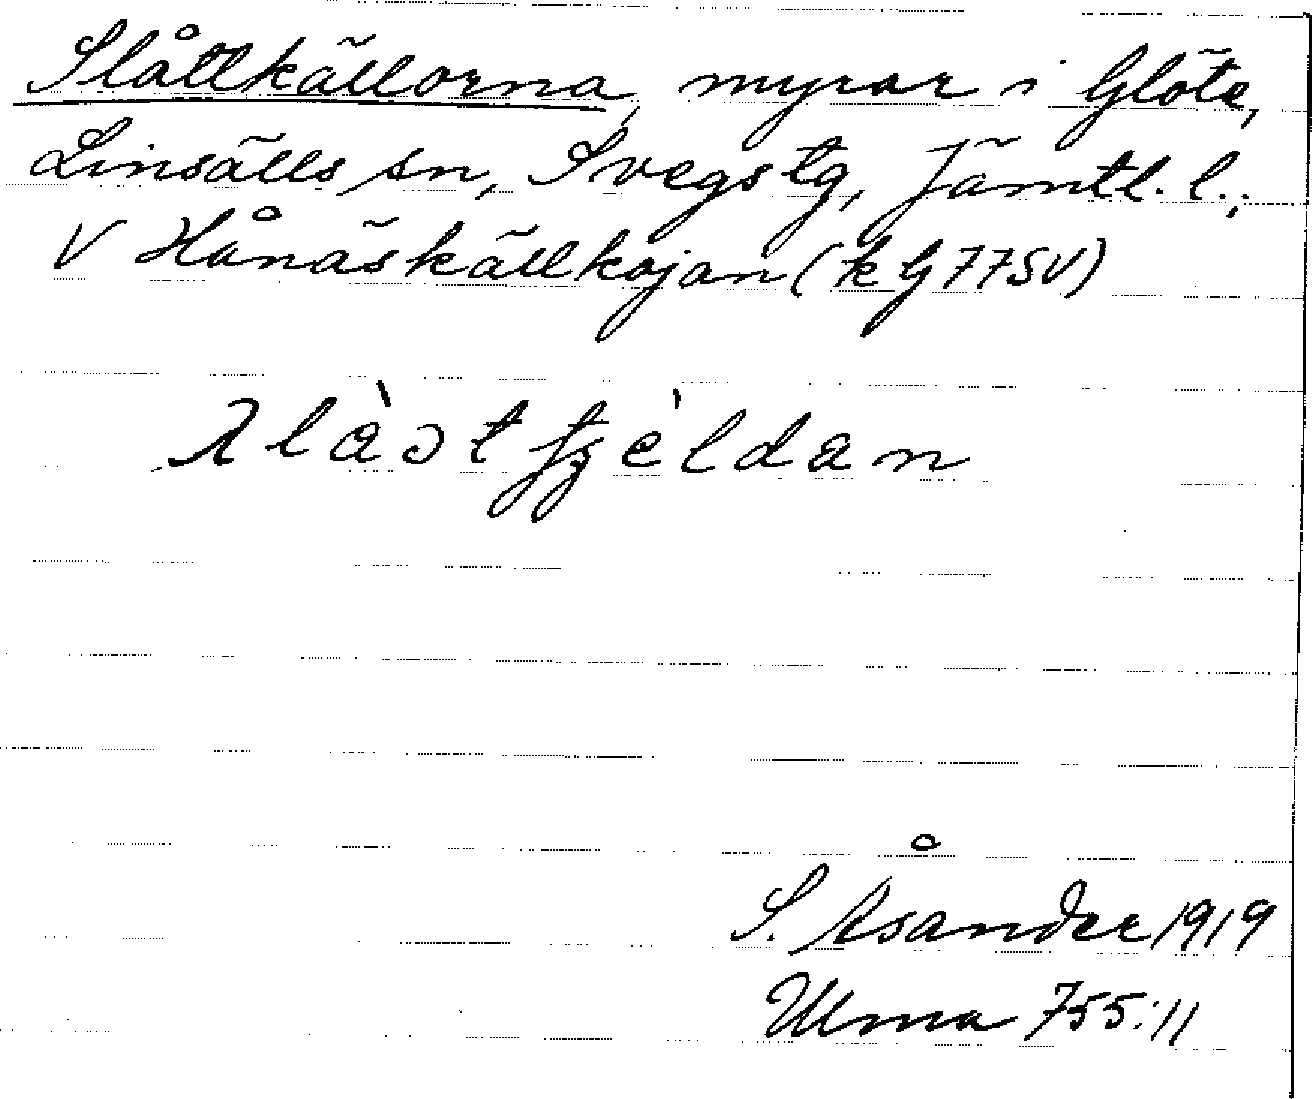 Slåttkällorna, myrar i Glöte,
Linsälls sn, Svegs tg, Jämtl. l.,
V Hånäskällkojan (k G 77SV)
S. Åsander 1919
Ulma 755:11